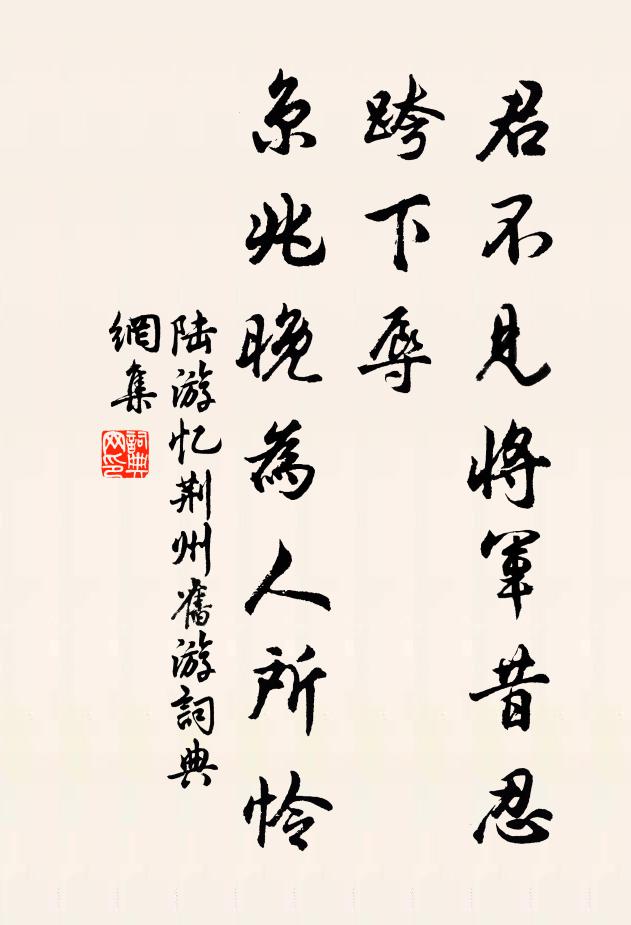 君不见将軍昔忍
跨下辱
京兆晚為人所怜
陆游忆荆州舊游詞典
網集
詞典
网印